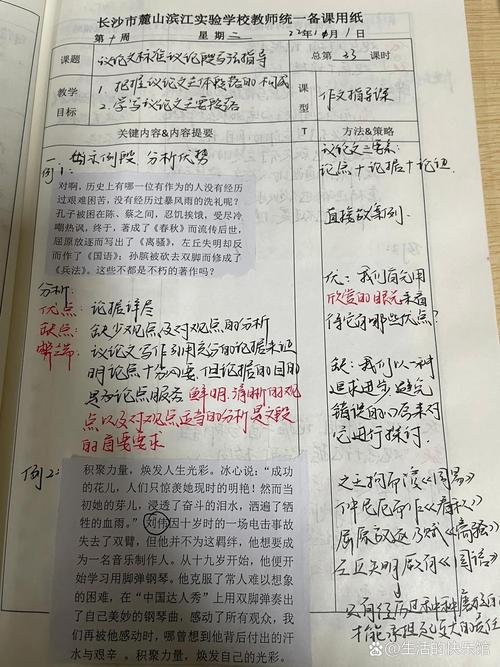 长沙市麓山滨江实验学校教师统一备课用纸
第 十 周 星 期 二 22年11月1日
课题 议论文标准议论段写法指导 总第 33 课时
教学目标 1. 把握议论文主体段落的不同成
2. 学写议论文主要段落
课型 作文指导课
关键内容&内容提要 T 方法&策略
一、出示例段 分析优势
例1:
对啊，历史上有哪一位有作为的人没有经历
过艰难困苦，没有经过暴风雨的洗礼呢？
孔子被困在陈、蔡之间，忍饥挨饿，受尽冷
嘲热讽，终于，著成了《春秋》而流传后世，
屈原放逐而写出了《离骚》，左丘失明却反
而作了《国语》；孙膑被砍去双脚而修成了
《兵法》。这些不都是不朽的著作吗？
分析：
优点：论据详尽
缺点：缺少观点及对观点的分析
解读：议论文写作引用充分的论据来证
明论点十分必要，但论据的目的
是为论点服务，鲜明、清晰的观
点以及对观点适当的分析是文段
的首要要求
例2:
积聚力量，焕发人生光彩。冰心说：“成功
的花儿，人们只惊羡她现时的明艳！然而当
初她的芽儿，浸透了奋斗的泪水，洒遍了牺
牲的血雨。”刘伟因十岁时的一场电击事故
失去了双臂，但他并不为这羁绊，他想要成
为一名音乐制作人。从十九岁开始，他便开
始学习用脚弹钢琴。他克服了常人难以想象
的困难，在“中国达人秀”上用双脚弹奏出
了自己美妙的钢琴曲，感动了所有观众，我
们再被他感动时，哪曾想到他背后付出的汗
水与艰辛。积聚力量，焕发自己的光彩。
议论文三要素：
论点+论据+论证
直接改案例.
优：我们首先用
欣赏的眼光来看
待它有哪些优点？
缺：我们以一种
追求进步、避免
错误的心居来对
它进行探讨.
文王拘而演《周易》
仲尼厄而作《春秋》
屈原放逐乃赋《离骚》
左丘失明厥有《国语》
只有经历
才能承担
@生活的快乐馆